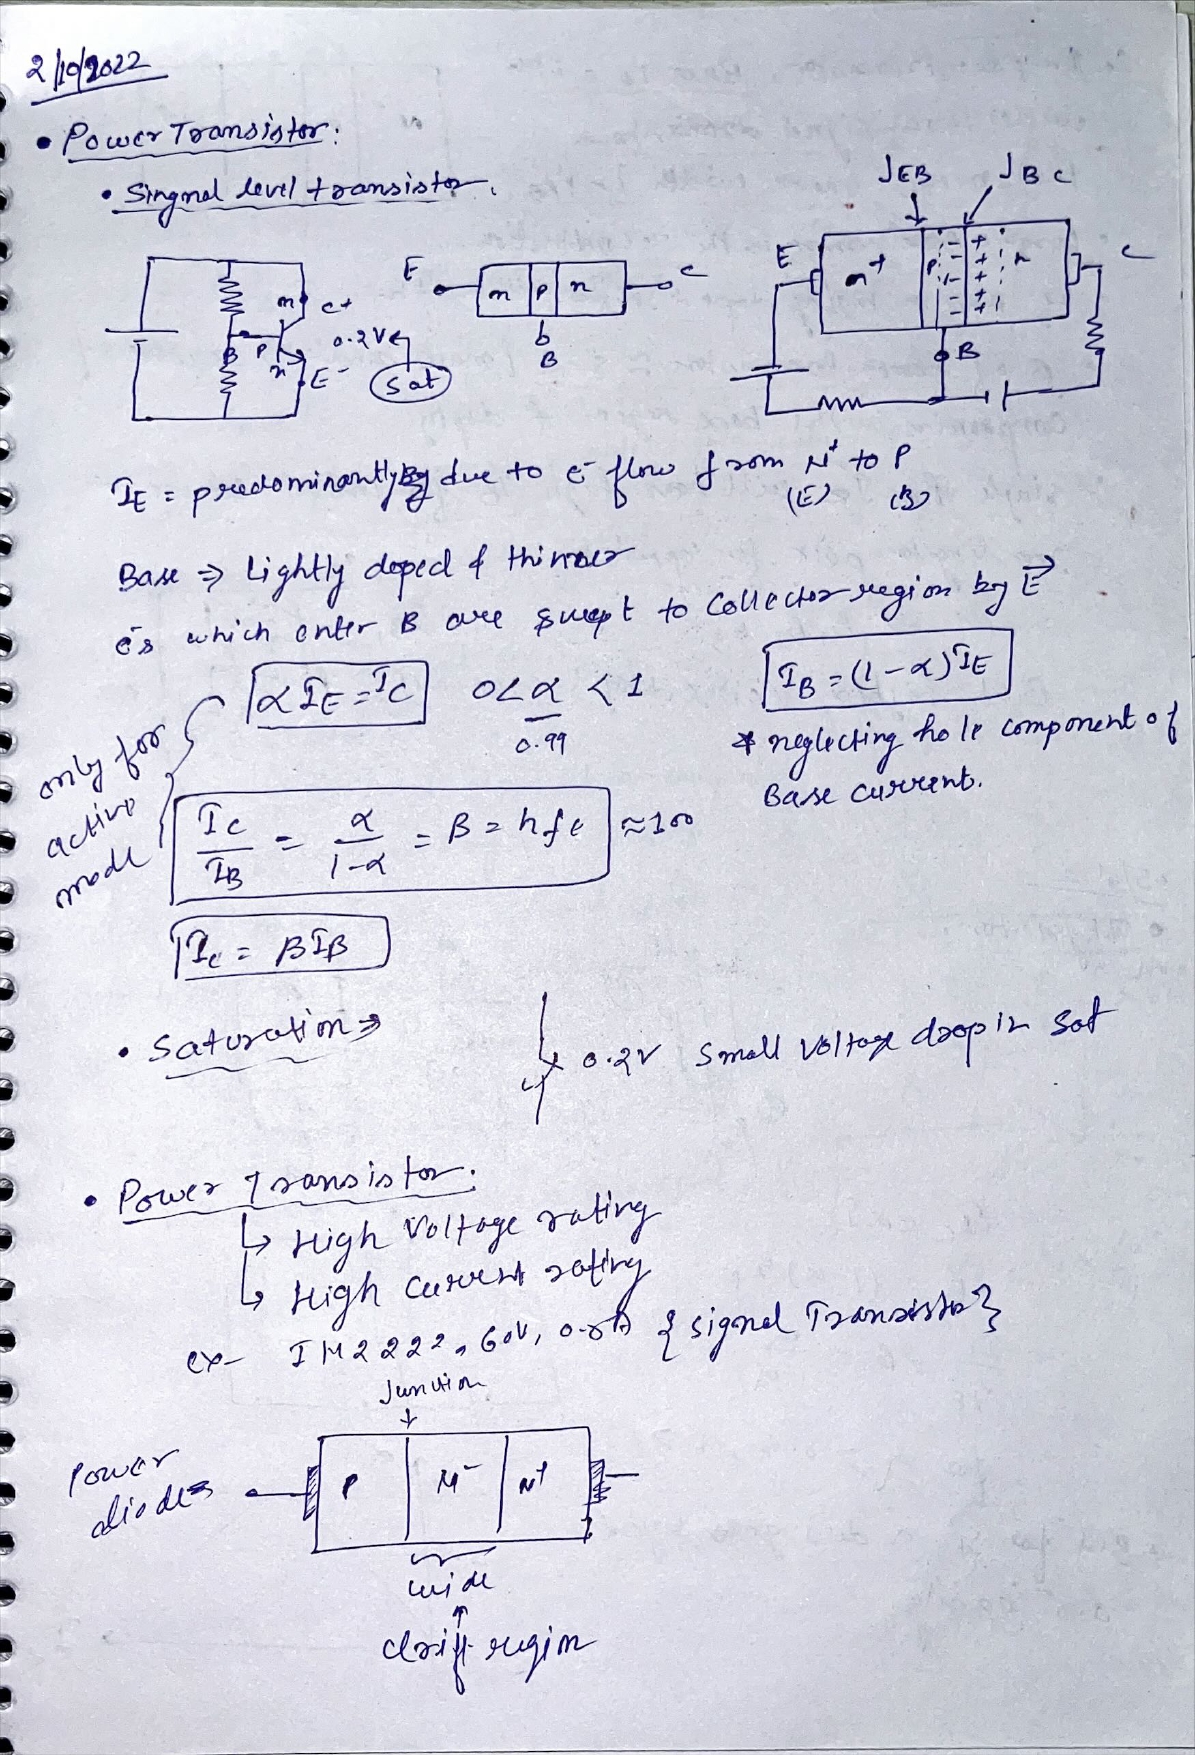 2/10/2022
• Power Transistor:
• Singnal level transistor.
JEB JBC
n C+
B P 0.2V
n E- sat
E n p n C
b
B
E n+ p n C
- +
- +
- +
- +
- +
B
IE = predominantly by due to e- flow from N+ to P
(E) (B)
Base ⇒ Lightly doped & thinner
e-s which enter B are swept to Collector region by E→
αIE = IC 0<α<1 IB = (1-α)IE
0.99
* neglecting hole component of
Base current.
only for
active
mode
IC/IB = α/1-α = β = hfe ≈100
IC = βIB
• Saturation ⇒
0.2V Small Voltage drop in Sat
• Power Transistor:
↳ High Voltage rating
↳ High Current rating
ex- 2222, 60V, {signal Transistor}
Junction
↓
Power
diodes
P N- N+
wide
↑
drift region